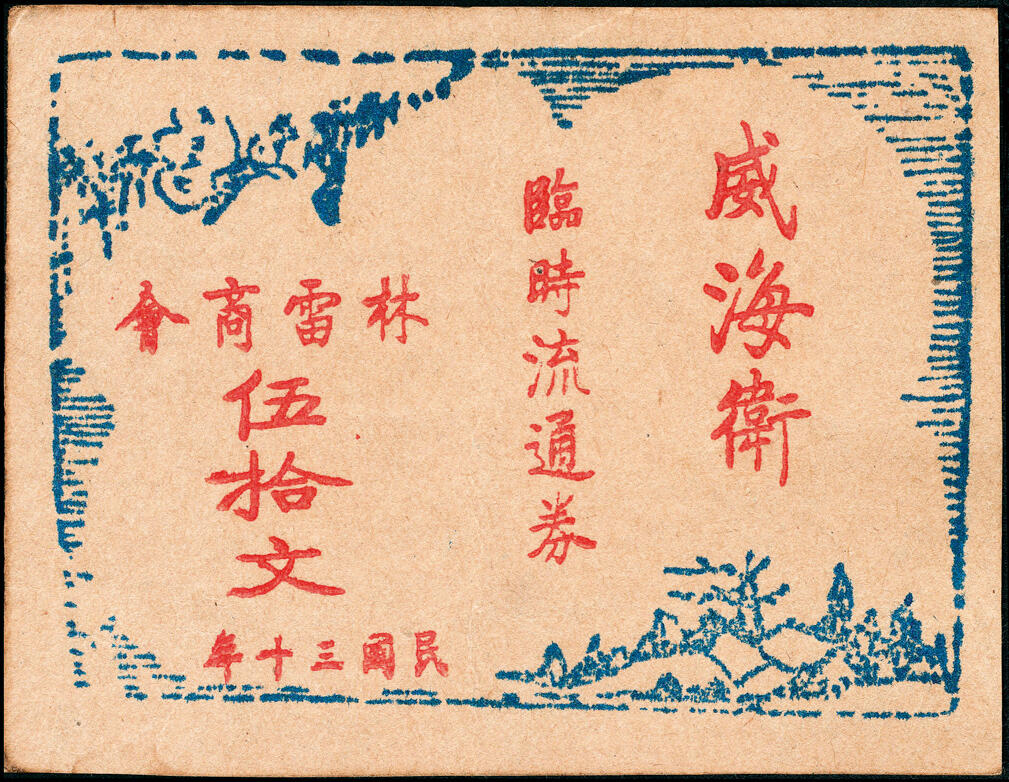 威海衛
臨時流通券
林雷商會
伍拾文
民國三十年